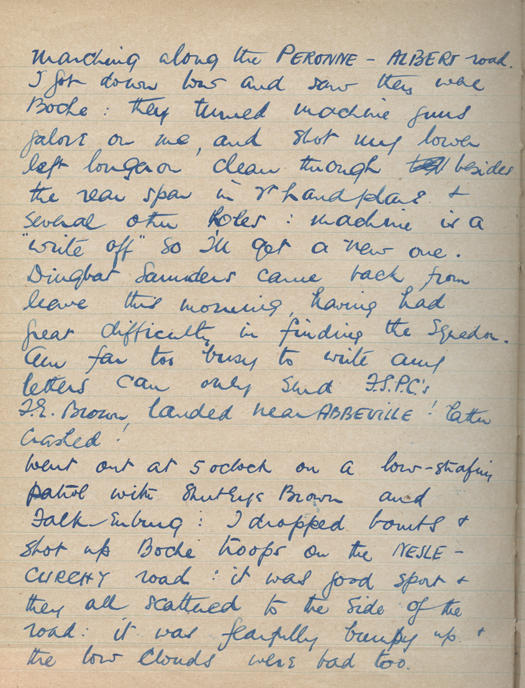 marching along the PERONNE - ALBERT road.
I got down low and saw they were
Boche : they turned machine guns
galore on me, and shot my lower
left longeron clean through besides
the rear spar in r hand plane &
several other holes : machine is a
"write off" so I'll get a new one.
Dingbat Saunders came back from
leave this morning, having had
great difficulty in finding the Sqredon.
Am far too busy to write any
letters can only send F.S.P.C's
F.E. Brown landed near ABBEVILLE ! later
crashed !
Went out at 5 oclock on a low-strafing
patrol with Brown and
Falk-enburg : I dropped bombs &
shot up Boche troops on the NESLE -
CURCHY road : it was good sport &
they all scattered to the side of the
road : it was fearfully bumpy up &
the low clouds were bad too.